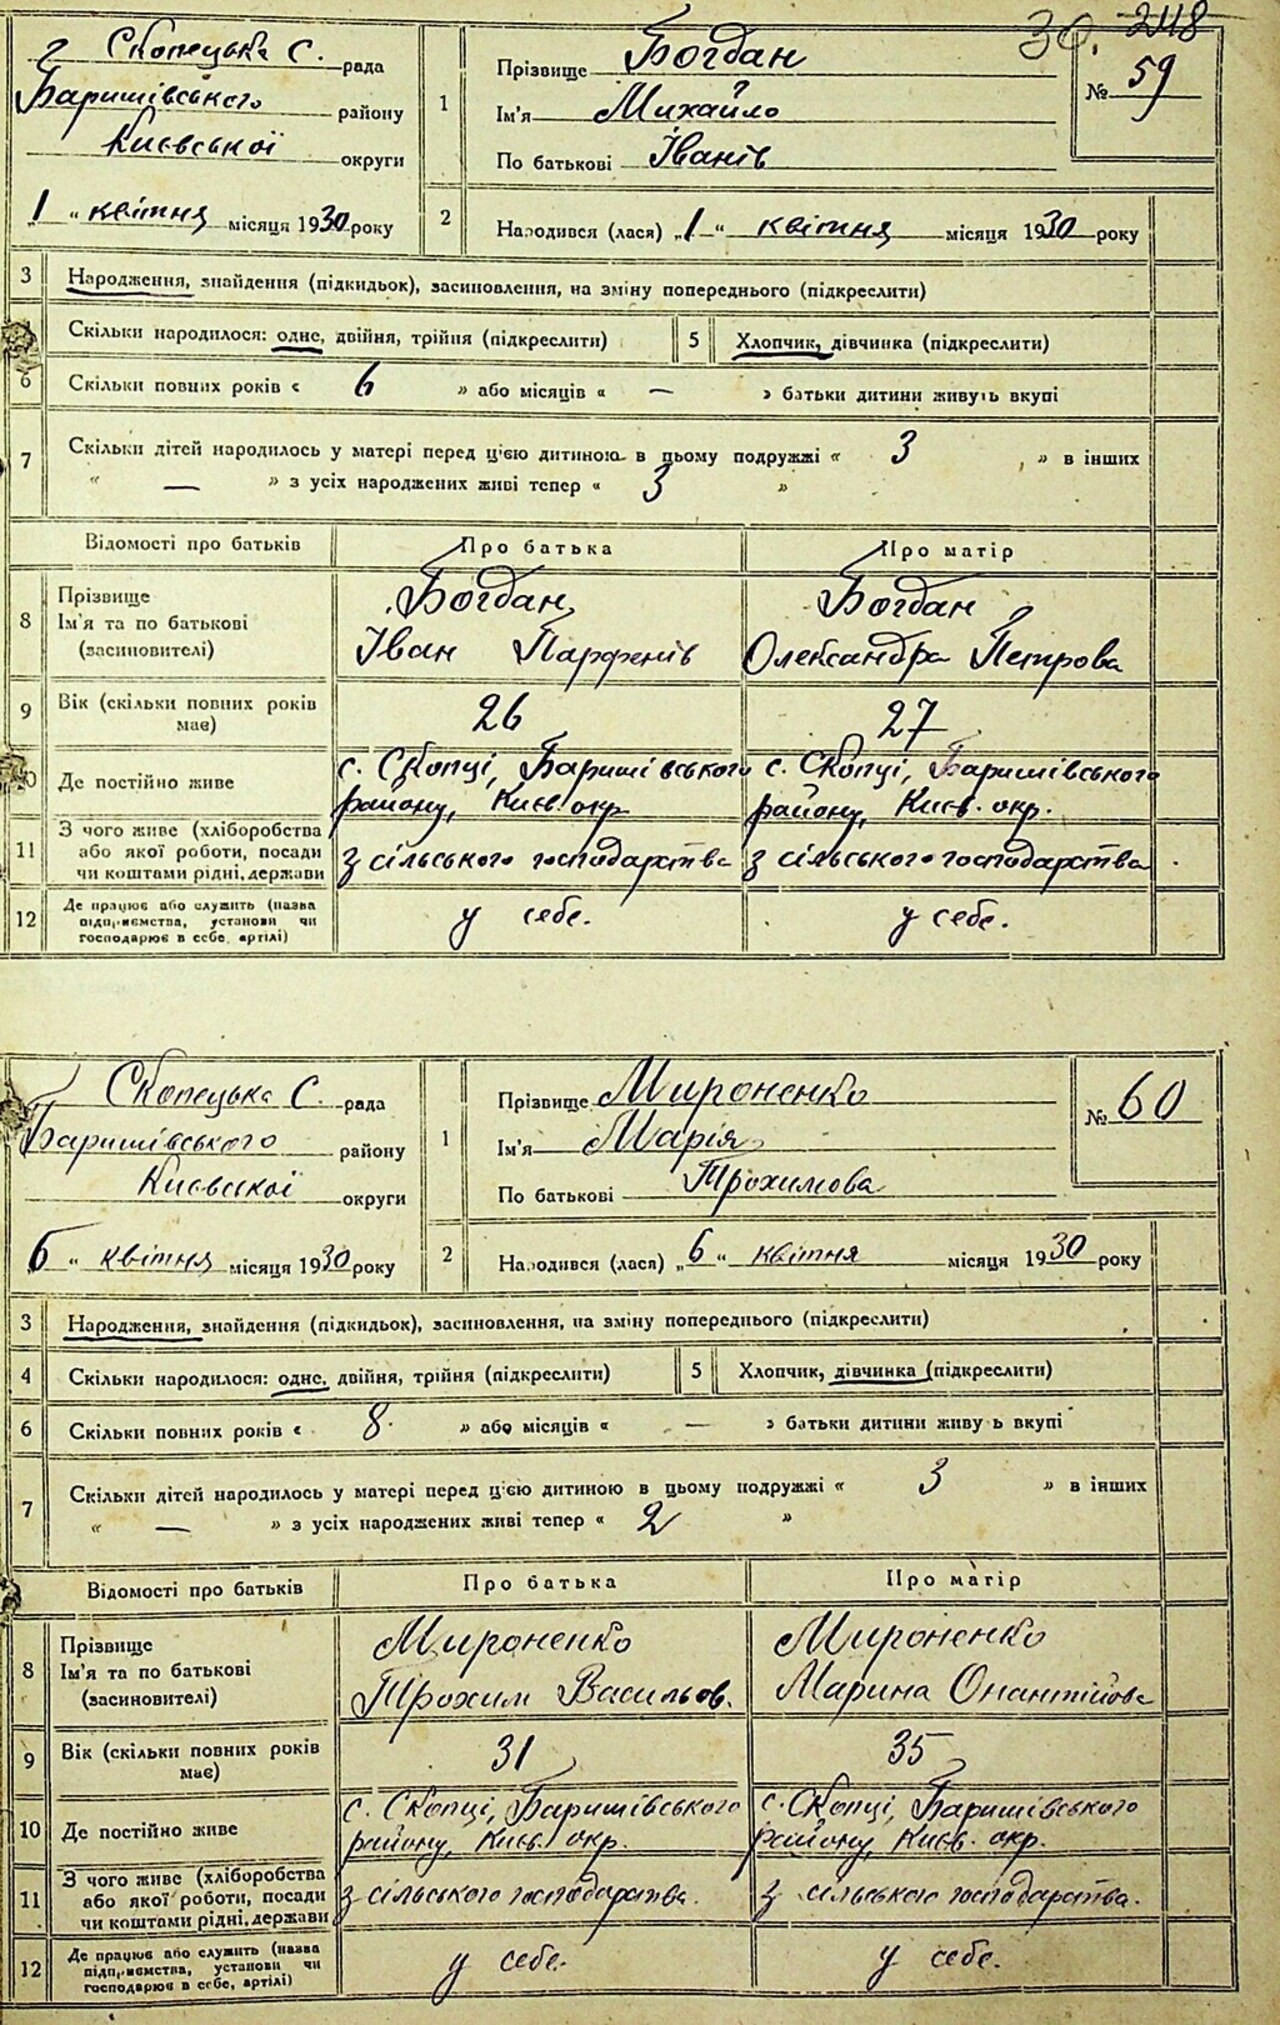 30. 248
Скопецька С. рада
Баришівського району
Києвської округи
„1“ квітня місяця 1930 року
1
Прізвище Богдан
Ім'я Михайло
По батькові Іванів
№ 59
2
Народився (лася) „1“ квітня місяця 1930 року
3 Народження, знайдення (підкидьок), засиновлення, на зміну попереднього (підкреслити)
Скільки народилося: одне, двійня, трійня (підкреслити) 5 Хлопчик, дівчинка (підкреслити)
6 Скільки повних років « 6 » або місяців « — » батьки дитини живуть вкупі
7 Скільки дітей народилось у матері перед ц'єю дитиною в цьому подружжі « 3 » в інших
« — » з усіх народжених живі тепер « 3 »
Відомості про батьків Про батька Про матір
8 Прізвище Ім'я та по батькові (засиновителі)
Богдан Іван Парфенів
Богдан Олександра Петрова
9 Вік (скільки повних років має) 26 27
10 Де постійно живе
с. Скопці, Баришівського району, Києв. окр
с. Скопці, Баришівського району, Києв. окр.
11 З чого живе (хліборобства або якої роботи, посади чи коштами рідні, держави
З сільського господарства З сільського господарства
12 Де працює або служить (назва підприємства, установи чи господарює в себе, артілі)
у себе. у себе.
Скопецька С. рада
Баришівського району
Києвської округи
„6“ квітня місяця 1930 року
1
Прізвище Мироненко
Ім'я Марія
По батькові Трохимова
№ 60
2
Народився (лася) „6“ квітня місяця 1930 року
3 Народження, знайдення (підкидьок), засиновлення, на зміну попереднього (підкреслити)
4 Скільки народилося: одне, двійня, трійня (підкреслити) 5 Хлопчик, дівчинка (підкреслити)
6 Скільки повних років « 8 » або місяців « — » батьки дитини живу ь вкупі
7 Скільки дітей народилось у матері перед ц'єю дитиною в цьому подружжі « 3 » в інших
« — » з усіх народжених живі тепер « 2 »
Відомості про батьків Про батька Про матір
8 Прізвище Ім'я та по батькові (засиновителі)
Мироненко Трохим Васильов.
Мироненко Марина
9 Вік (скільки повних років має) 31 35
10 Де постійно живе
с. Скопці, Баришівського району, Києв. окр.
с. Скопці, Баришівського району, Києв. окр.
11 З чого живе (хліборобства або якої роботи, посади чи коштами рідні, держави
З сільського господарства. З сільського господарства.
12 Де працює або служить (назва підприємства, установи чи господарює в себе, артілі)
у себе. у себе.